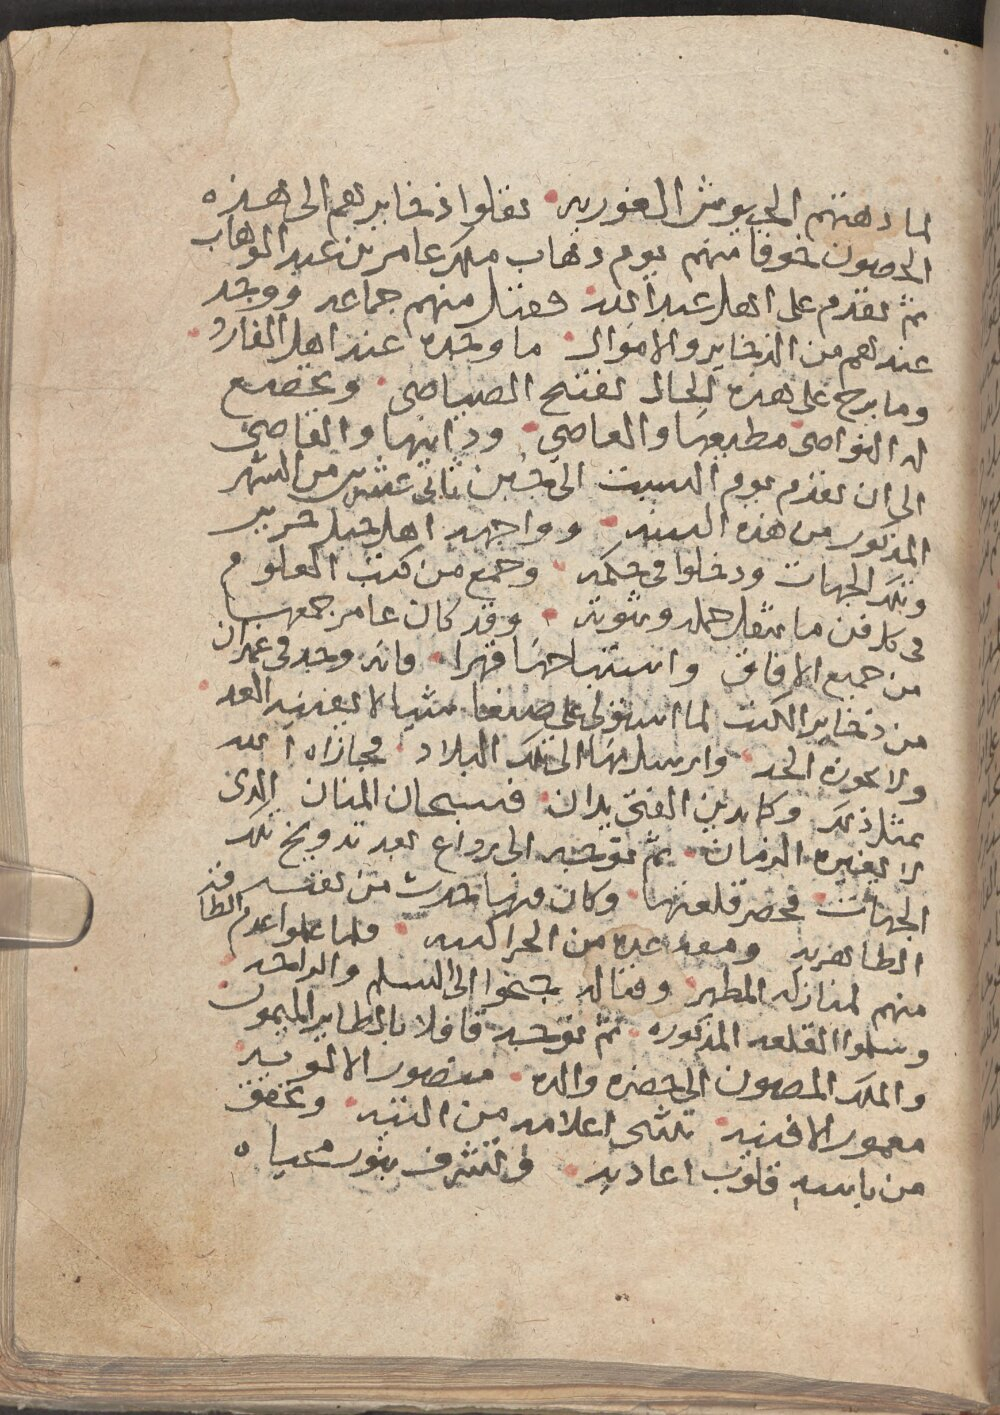 لما دهنتهم الجيوش الغوريه نقلوا ذخايرهم الى هذه
الحصون خوفا منهم يوم ذهاب ملك عامر بن عبد الوهاب
ثم تقدم على اهل عبد الله فقتل منهم جماعه ووجد
عندهم من الذخاير والاموال ما وجده عند اهل القاره
وما برح على هذه الحال لفتح الصياصي وتخضع
له النواصي مطيعها والعاصي ودانيها والقاصي
الى ان تقدم يوم السبت الى جبن ثاني عشر من الشهر
المذكور من هذه السنه وواجهه اهل جبل حرير
وتلك الجهات ودخلوا في حكمه وجمع من كتب العلوم
في كل فن ما يثقل حمله وثوته وقد كان عامر جمعها
من جميع الافاق واستباحها قهرا فانه وجد في عمران
من ذخاير الكتب لما استولى على صنعا شيا لا يفنيه العد
ولا يحوزه الحد وارسل بها الى تلك البلاد فجازاه الله
بمثل ذلك وكما يدين الفتى يدان فسبحان المنان الذى
لا يغيره الزمان ثم توجه الى رداع بعد تدويخ تلك
الجهات فحصر قلعتها وكان فيها من تقيه فيه
الطاهريه ومعه عده من الجراكسه فلما علموا عدم الطا
منهم لمنازله المطهر وقتاله جنحوا الى السلم والدامحه
وسلموا القلعه المذكوره ثم توجه قافلا بالطاير الميمون
والملك المصون الى حضره والده منصور الالويه
معمور الافنيه تلثم اعلامه من التيه وتخفق
من باسه قلوب اعاديه ولتتشرف بثور محياه